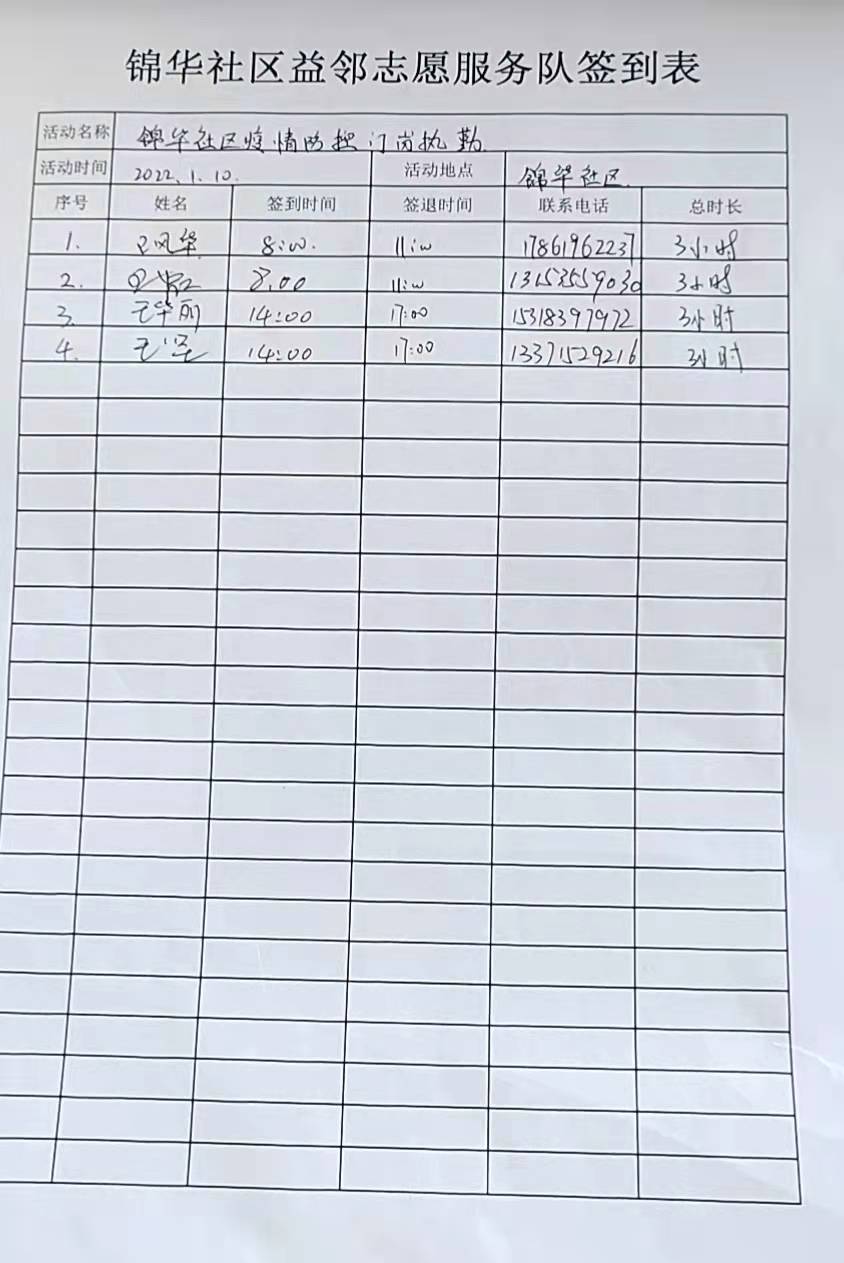 锦华社区益邻志愿服务队签到表
活动名称 锦华社区疫情防控门岗执勤
活动时间 2022.1.10. 活动地点 锦华社区.
序号 姓名 签到时间 签退时间 联系电话 总时长
1. 风华 8:00. 11:00 17861962237 3小时
2. 8:00 11:00 13153559030 3小时
3. 王华丽 14:00 17:00 15318397972 3小时
4. 14:00 17:00 13371529216 3小时